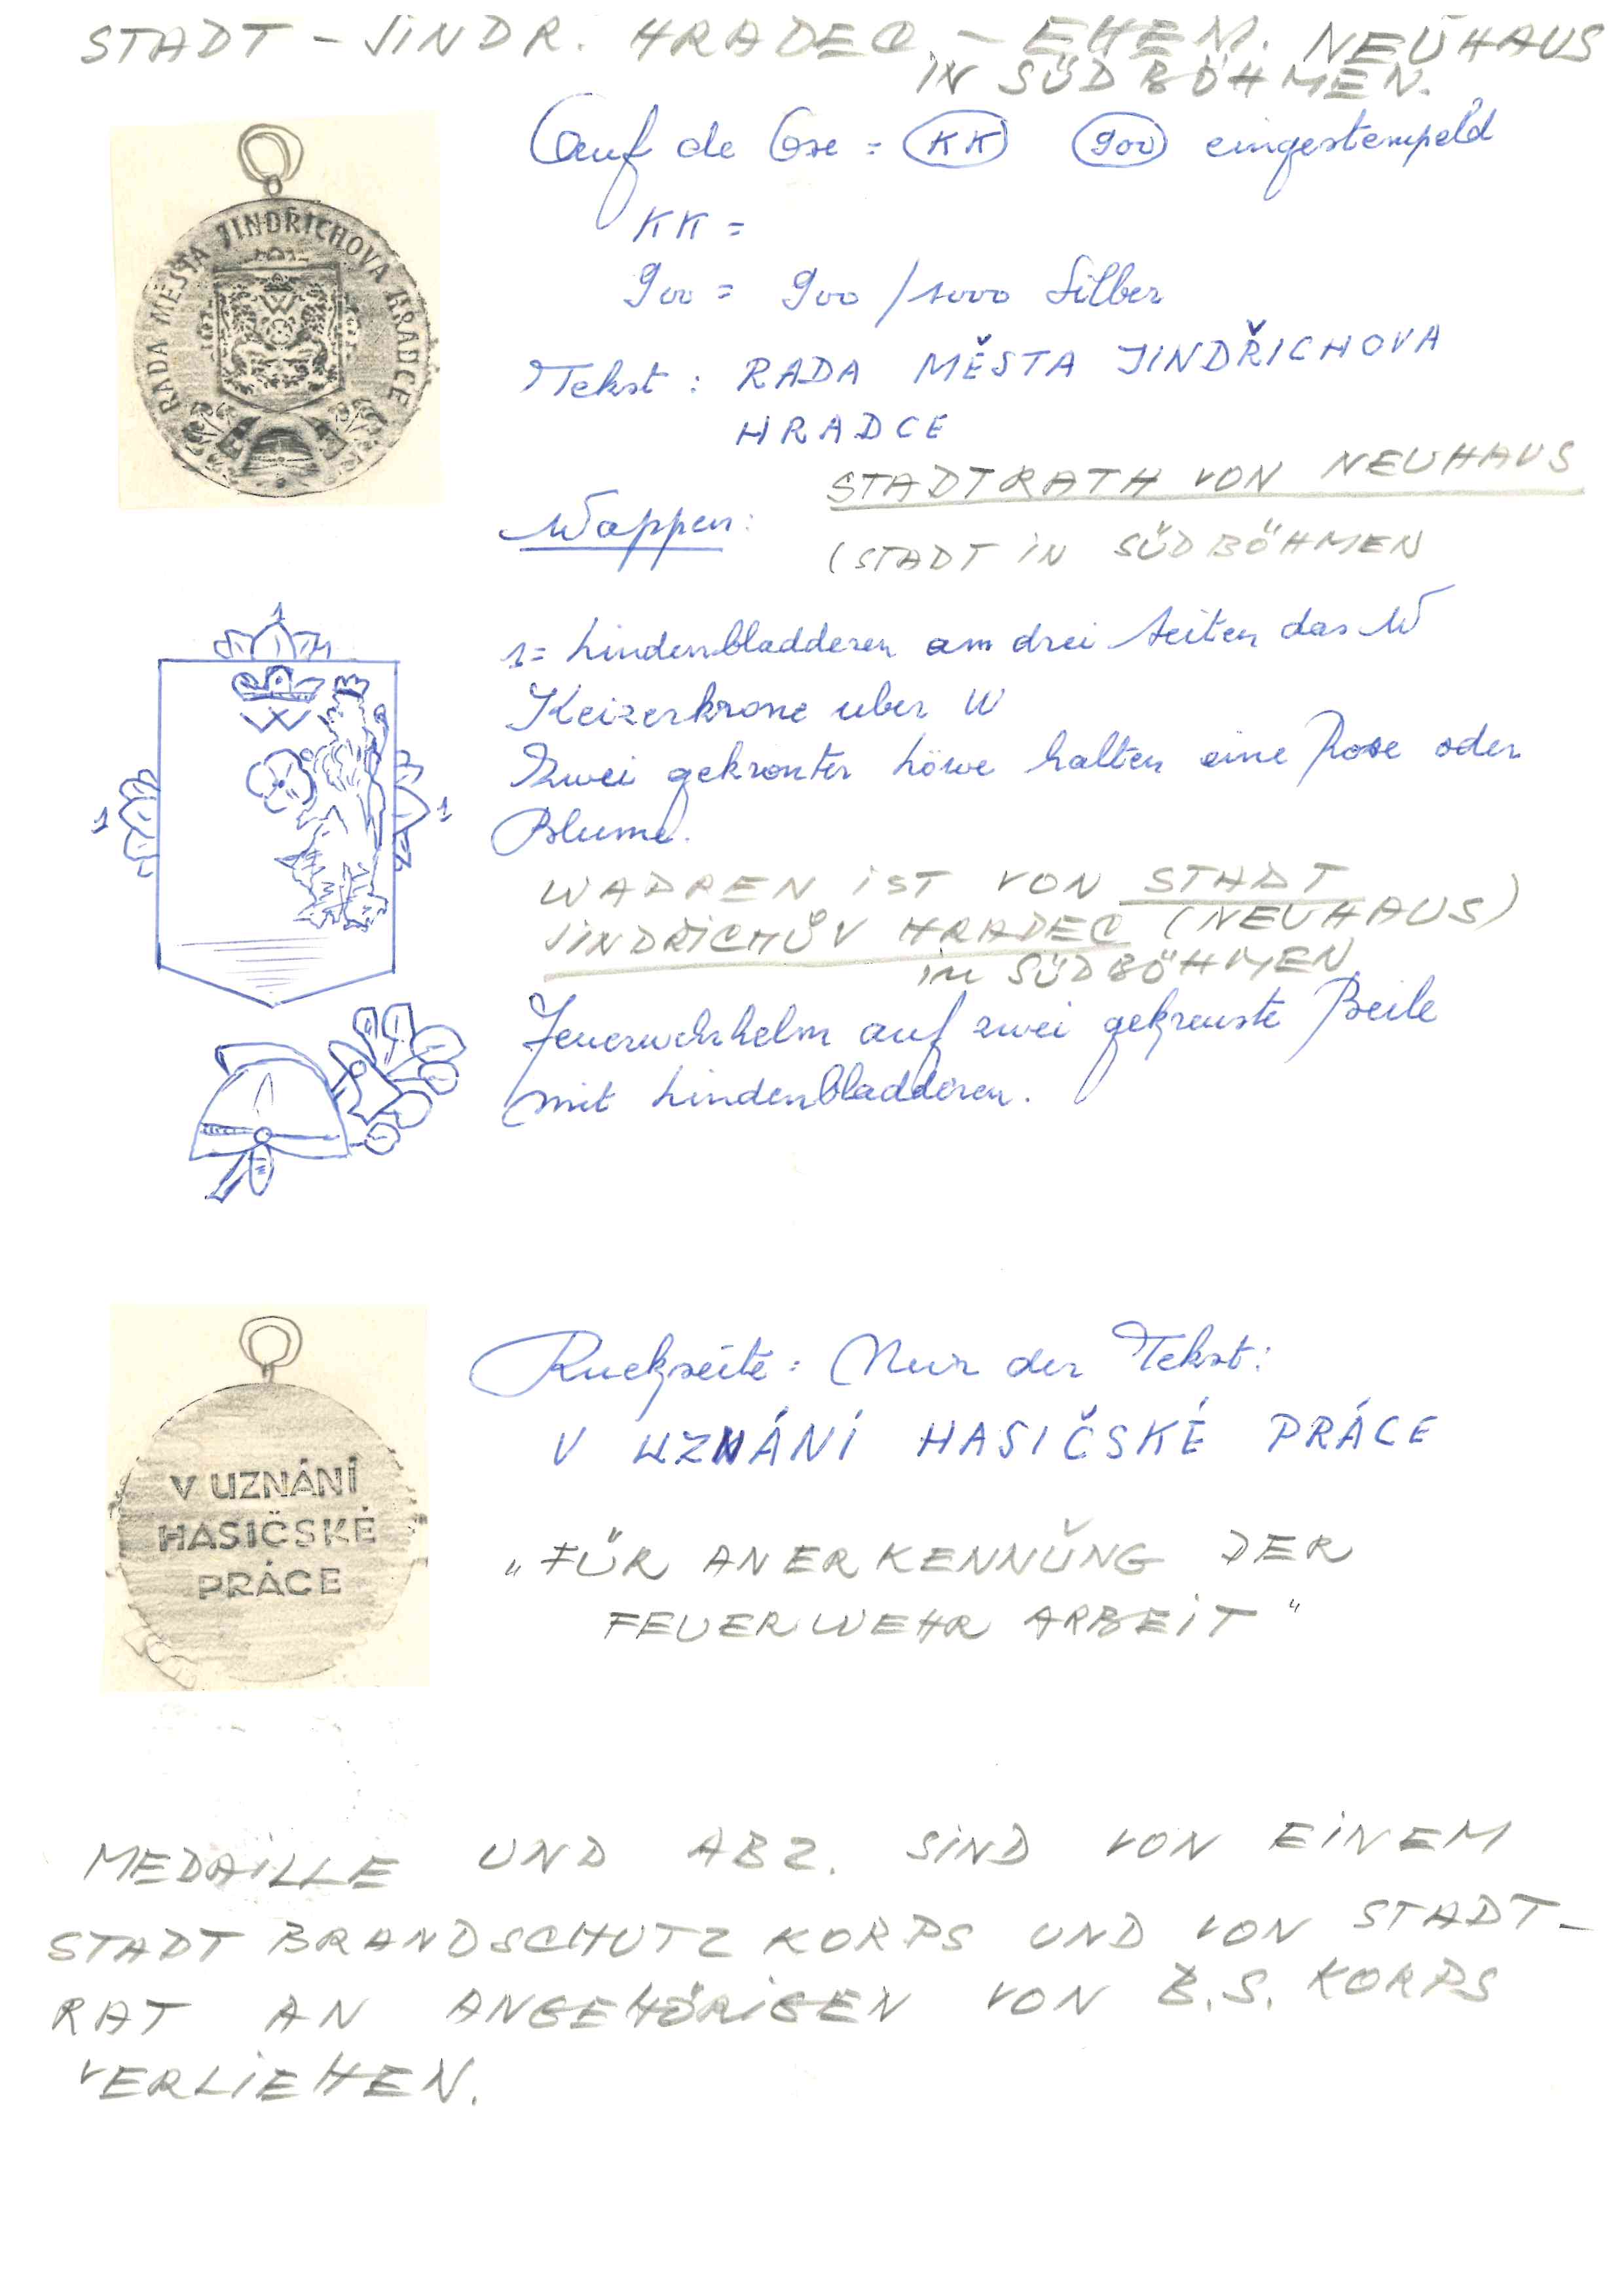 STADT – JINDR. HRADEC – EHEM. NEUHAUS
IN SÜDBÖHMEN.
RADA MĚSTA JINDŘICHOVA HRADCE
W
Auf de Öse = KK 900 eingestempeld
KK =
900 = 900/1000 Silber
Tekst: RADA MĚSTA JINDŘICHOVA
HRADCE
STADTRATH VON NEUHAUS
Wappen:
(STADT IN SÜDBÖHMEN
1
W
1
1
1= Lindenbladderen am drei Seiten das W
Keizerkrone uber W
Zwei gekronter Löwe halten eine Rose oder
Blume.
IST VON STADT
JINDŘICHŮV HRADEC (NEUHAUS)
in SÜDBÖHMEN
Feuerwehrhelm auf zwei gekreuste Beile
mit Lindenbladderen.
V UZNÁNÍ
HASIČSKÉ
PRÁCE
Ruckseite: Nur der Tekst:
V UZNÁNÍ HASIČSKÉ PRÁCE
„FÜR ANERKENNŬNG DER
FEUERWEHR ARBEIT"
MEDAILLE UND ABZ. SIND VON EINEM
STADT BRANDSCHUTZ KORPS UND VON STADT-
RAT AN ANGEHÖRIGEN VON B.S. KORPS
VERLIEHEN.